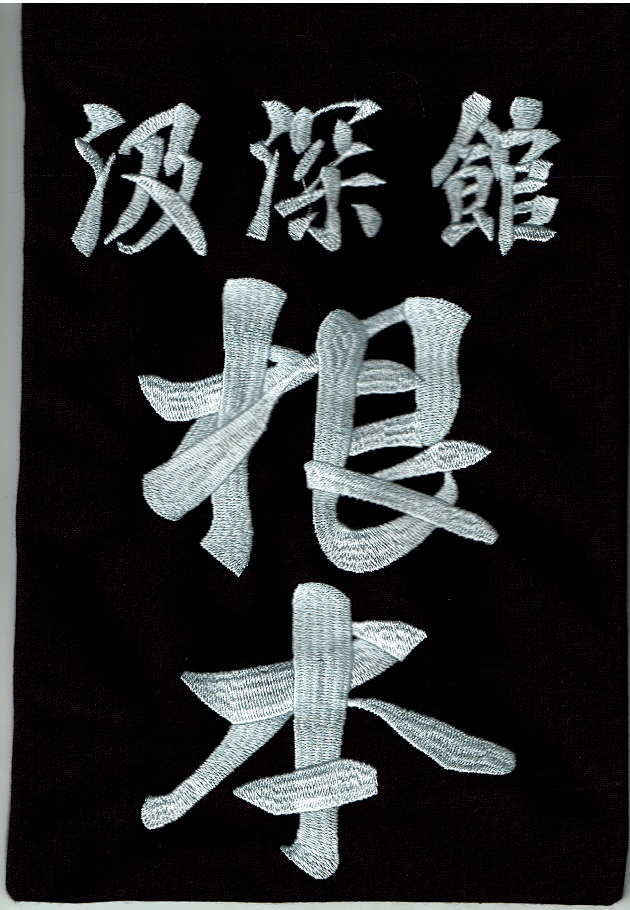 汲深館
根本